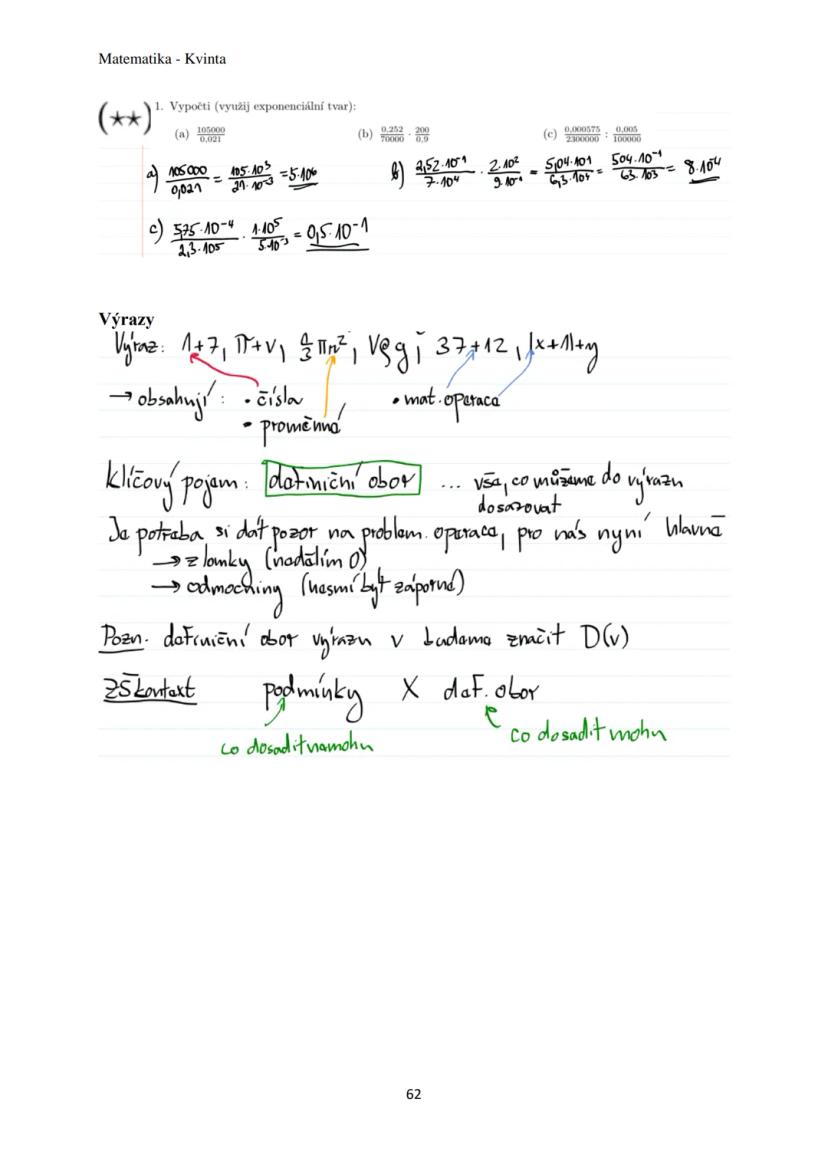 Matematika - Kvinta
(★★) 1. Vypočti (využij exponenciální tvar):
(a) 105000/0,021 (b) 0,252/70000 · 200/0,9 (c) 0,000575/2300000 : 0,005/100000
a) 105000/0,021 = 105·10³/21·10⁻³ = 5·10⁶ b) 2,52·10⁻¹/7·10⁴ · 2·10²/9·10⁻¹ = 5,04·10¹/6,3·10⁴ = 504·10⁻¹/63·10³ = 8·10⁻⁴
c) 575·10⁻⁴/2,3·10⁵ · 1·10⁵/5·10⁻³ = 0,5·10⁻¹
Výrazy
Výraz: 1+7, π+v, 4/3 πr², Vρg; 37+12, |x+1|+y
→ obsahují: • čísla • mat. operace
• proměnné
klíčový pojem: definiční obor ... vše, co můžeme do výrazu
dosazovat
Je potřeba si dát pozor na problem. operace, pro nás nyní hlavně
→ zlomky (nedělím 0)
→ odmocniny (nesmí být záporné)
Pozn. definiční obor výrazu v budeme značit D(v)
ZŠ kontext podmínky X def. obor
co dosadit nemohu co dosadit mohu
62